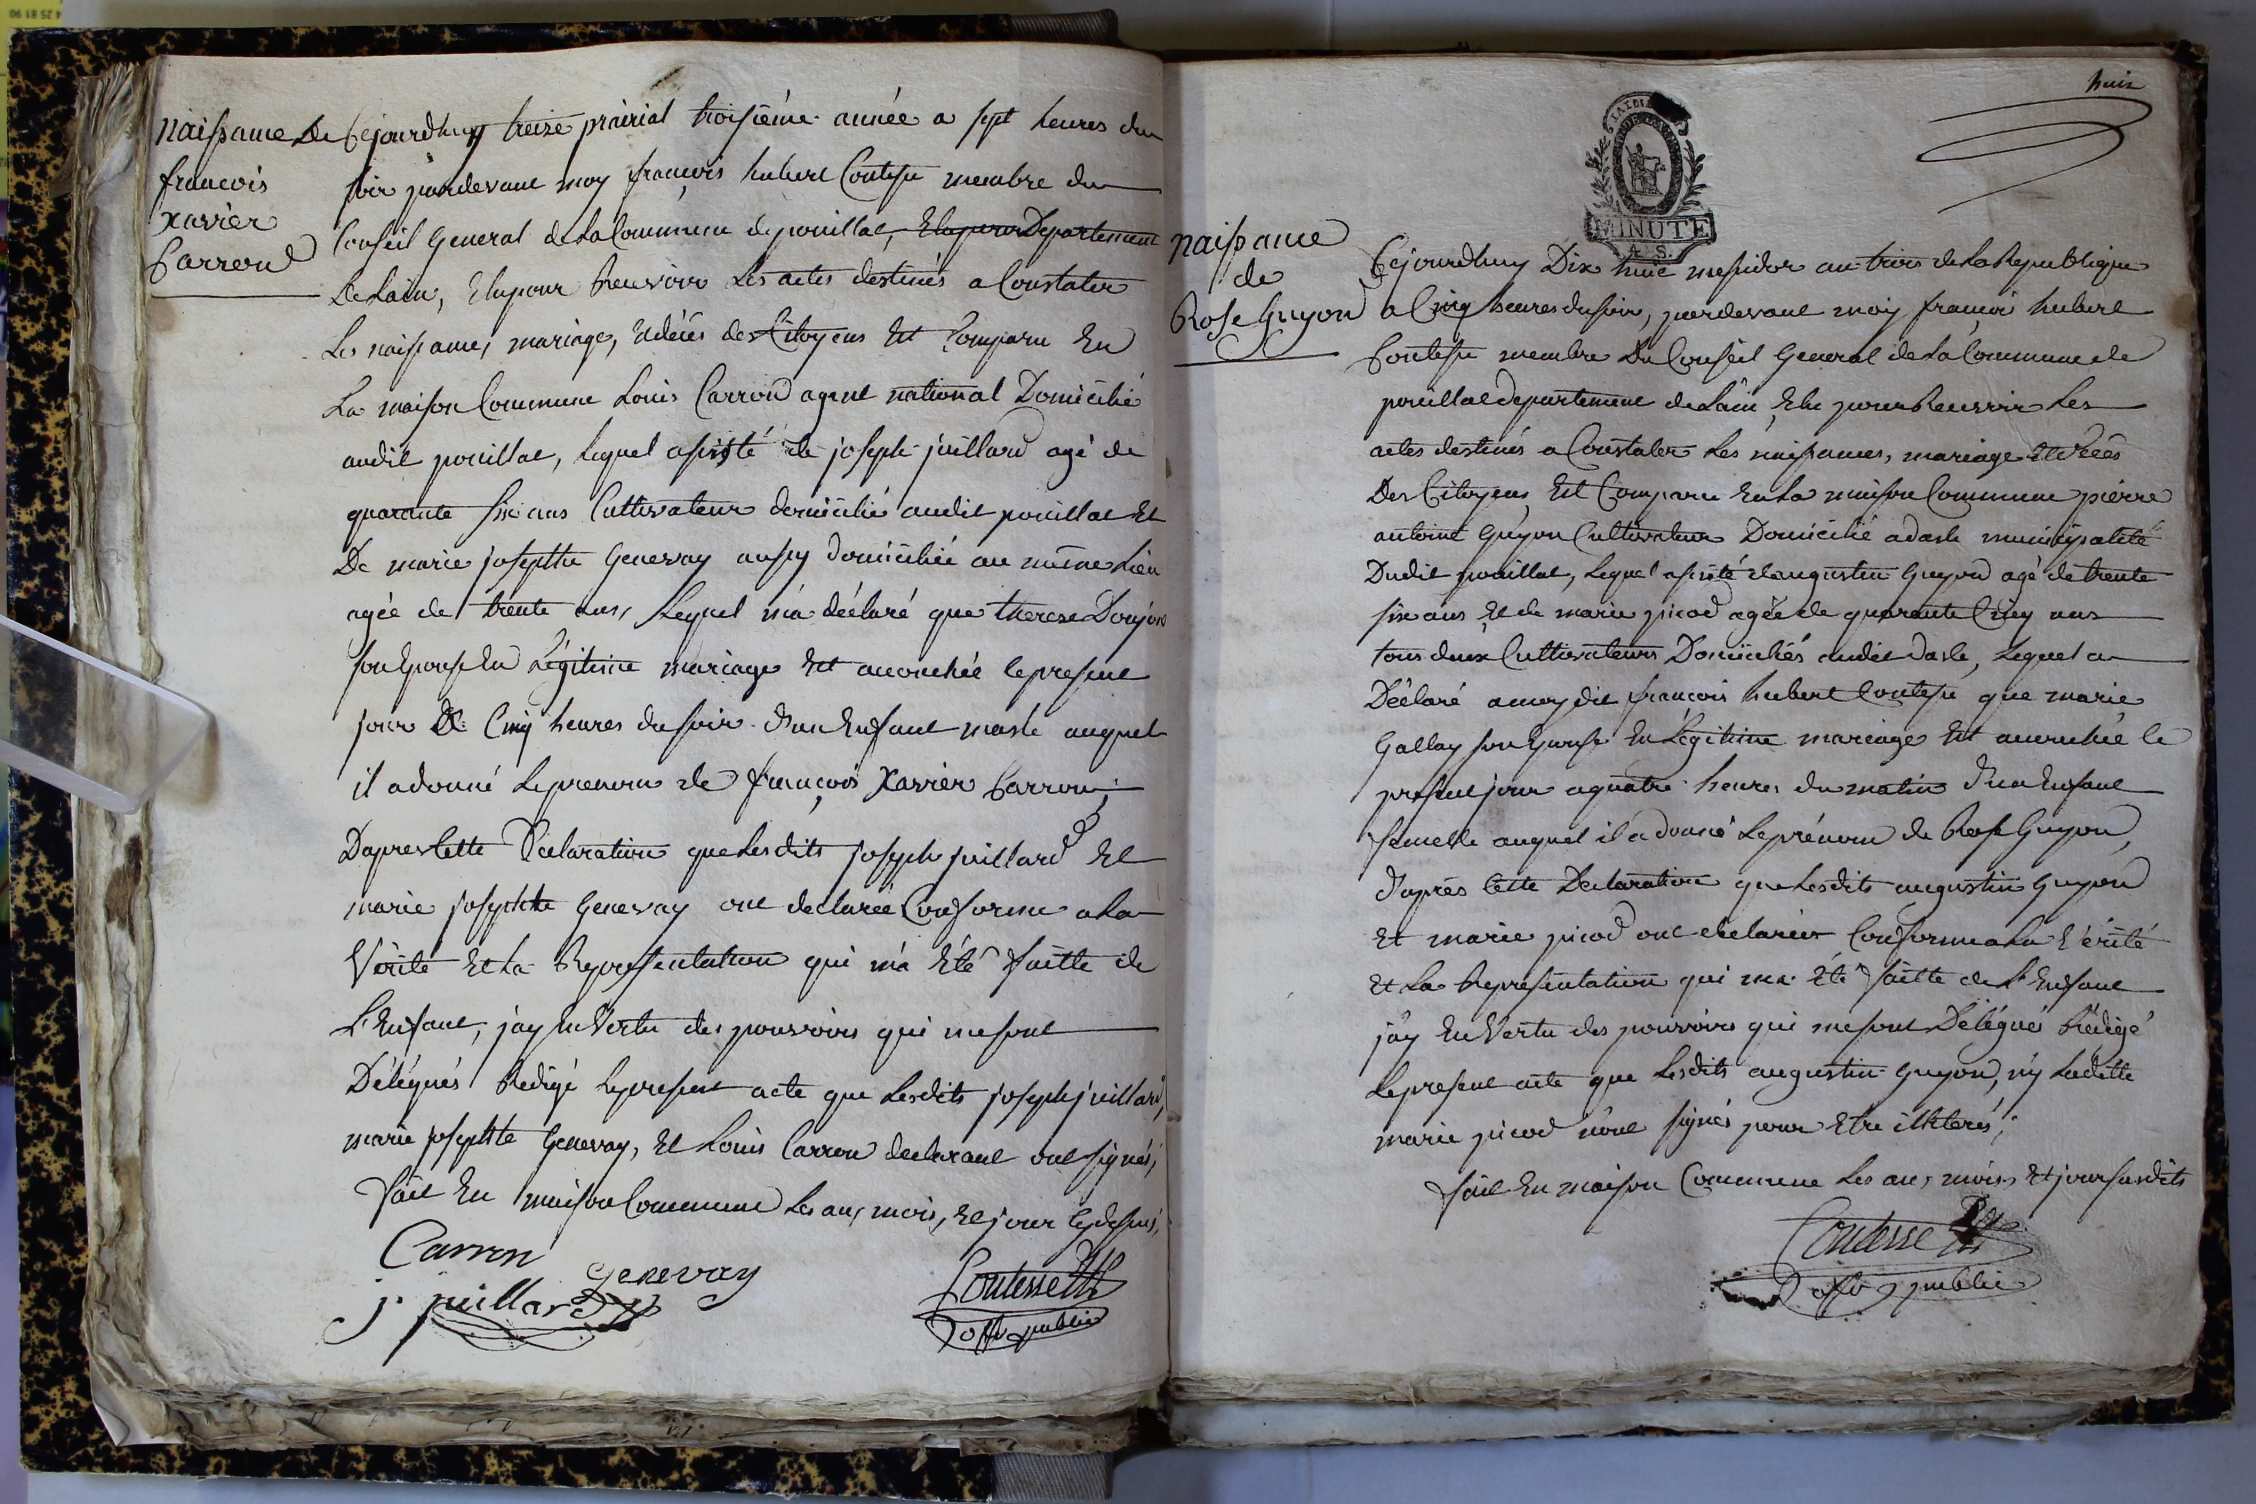 naissance de
francois
xavier
Carron
Cejourdhuy treize prairial troisiéme année a sept heures du
soir pardevant moy françois hubert Contesse membre du
Conseil General de La Commune de pouillat, Elu pour Departement
de Lain, Elu pour Recevoir Les actes destinés a Constater
Les naissances, mariage, et décés des Citoyens Est Comparu En
La maison Commune Louis Carron agent national Domicilié
audit pouillat, Lequel assisté de joseph juillard agé de
quarante six ans Cultivateur domicilié audit pouillat Et
De marie josephte Genevay aussy domiciliée au même Lieu
agée de trente ans, Lequel m'a déclaré que therese Donjon
son Epouse En Légitime mariage Est accouchée le present
jour à Cinq heures du soir d'un Enfant masle auquel
il a donné Le prenom de françois Xavier Carron;
D'apres Cette Déclaration que Lesdits joseph juillard Et
marie josephte Genevay ont declarée Conforme a La
Vérité Et La Representation qui m'a Eté faitte de
L'Enfant, j'ay En Vertu des pouvoirs qui me sont
Délégués Redigé Le present acte que Lesdits joseph juillard,
marie josephte Genevay, Et Louis Carron declarant ont signés;
fait En maison Commune Les an, mois, Et jour Cydessus;
Carron
Genevay
j. juillard
Contesse
offr public
huit
MINUTE
naissance
de
Rose Guyon
Cejourdhuy Dix huit messidor an trois de La Republique
a Cinq heures du soir, pardevant moy françois hubert
Contesse membre Du Conseil General de La Commune de
pouillat departement de Lain, Elu pour Recevoir Les
actes destinés a Constater Les naissances, mariage et décés
Des Citoyens, Est Comparu En La maison Commune pierre
antoine Guyon Cultivateur Domicilié a dasle municipalité
Dudit pouillat, Lequel assisté d'augustin Guyon agé de trente
six ans Et de marie picod agée de quarante Cinq ans
tous deux Cultivateurs Domiciliés audit dasle, Lequel a
Déclaré a moy dit françois hubert Contesse que marie
Gallay son Epouse En Légitime mariage Est accouchée le
present jour a quatre heures du matin d'un Enfant
femelle auquel il a donné Le prénom de Rose Guyon,
d'après Cette Declaration que Lesdits augustin Guyon
Et marie picod ont declarées Conforme a La Vérité
Et La Representation qui m'a Eté faitte de L'Enfant
j'ay En Vertu des pouvoirs qui me sont Délégués Rédigé
Le present acte que Lesdits augustin Guyon, n'y Laditte
marie picod n'ont signés pour Etre illiterés;
fait En maison Commune Les an, mois, Et jour susdits
Contesse
offr public